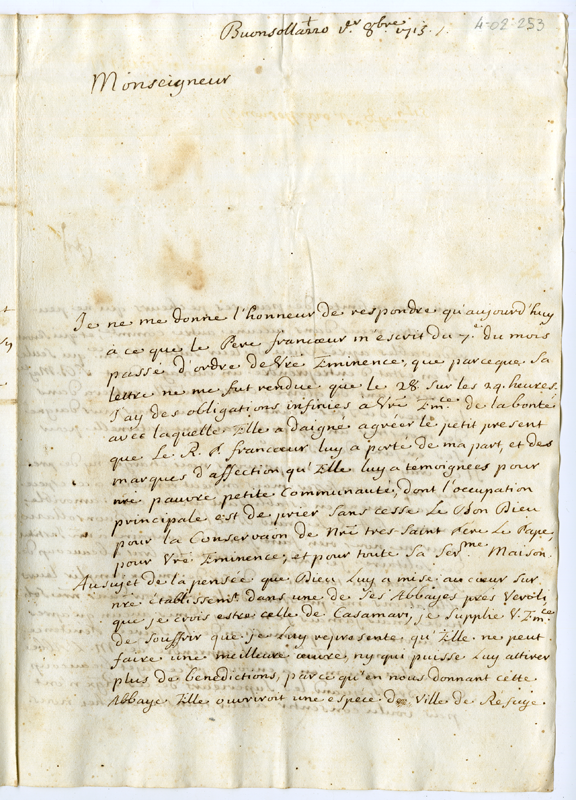 Buonsollazzo 1.er 8.bre 1713. /.
4-02-253
Monseigneur
Je ne me donne l'honneur de respondre qu'aujourd'huy
à ce que le Père francœur m'escrit du 7.e du mois
passé d'ordre de Vre Eminence, que parceque Sa
lettre ne me fut rendue que le 28 sur les 24 heures.
J'ay des obligations infinies à Vre Em.ce de la bonté
avec laquelle Elle a daigné agréer le petit present
que Le R. P. francœur luy a porté de ma part, et des
marques d'affection qu'Elle luy a temoignées pour
nre pauvre petite Communauté, dont l'occupation
principale est de prier sans cesse Le Bon Dieu
pour la Conservaon de Nre tres Saint Père Le Pape,
pour Vre Eminence, et pour toute Sa Ser.me Maison.
Au sujet de la pensée que Dieu Luy a mise au cœur sur
nre Etablissemt dans une de Ses Abbayes près Veroli,
que je crois estre celle de Casamari, je Supplie V. Em.ce
de Souffrir que je Luy represente qu'Elle ne peut
faire une meilleure œuvre, ny qui puisse Luy attirer
plus de benedictions, parce qu'en nous donnant cette
Abbaye Elle ouvriroit une espece de Ville de Refuge